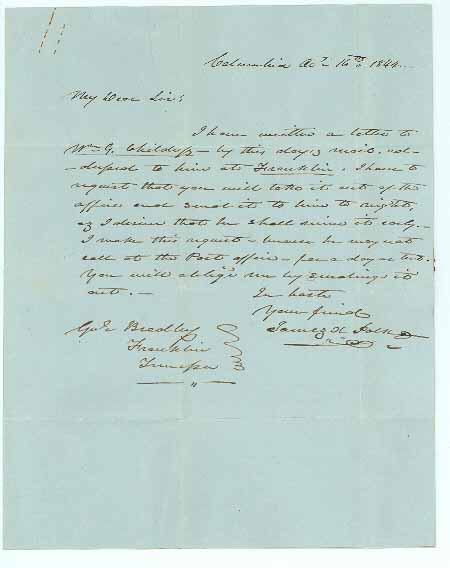 Columbia Oct 16th 1844
My Dear Sir:
I have written a letter to
Wm G. Childress - by this day's mail, ad-
-dressed to him at Franklin. I have to
request that you will take it out of the
office and send it to him to night,
as I desire that he shall receive it early. -
I make this request - because he may not
call at the Post office - for a day or two.
You will oblige me by sending it
out. -
In haste
Your friend
James K Polk
Bradley
Franklin
Tennessee